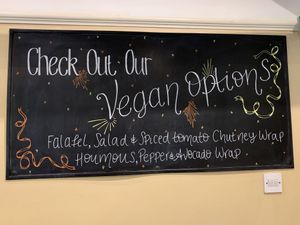 Check Out Our
Vegan Options
Falafel, Salad & Spiced tomato Chutney Wrap
Houmous, Pepper & Avocado Wrap